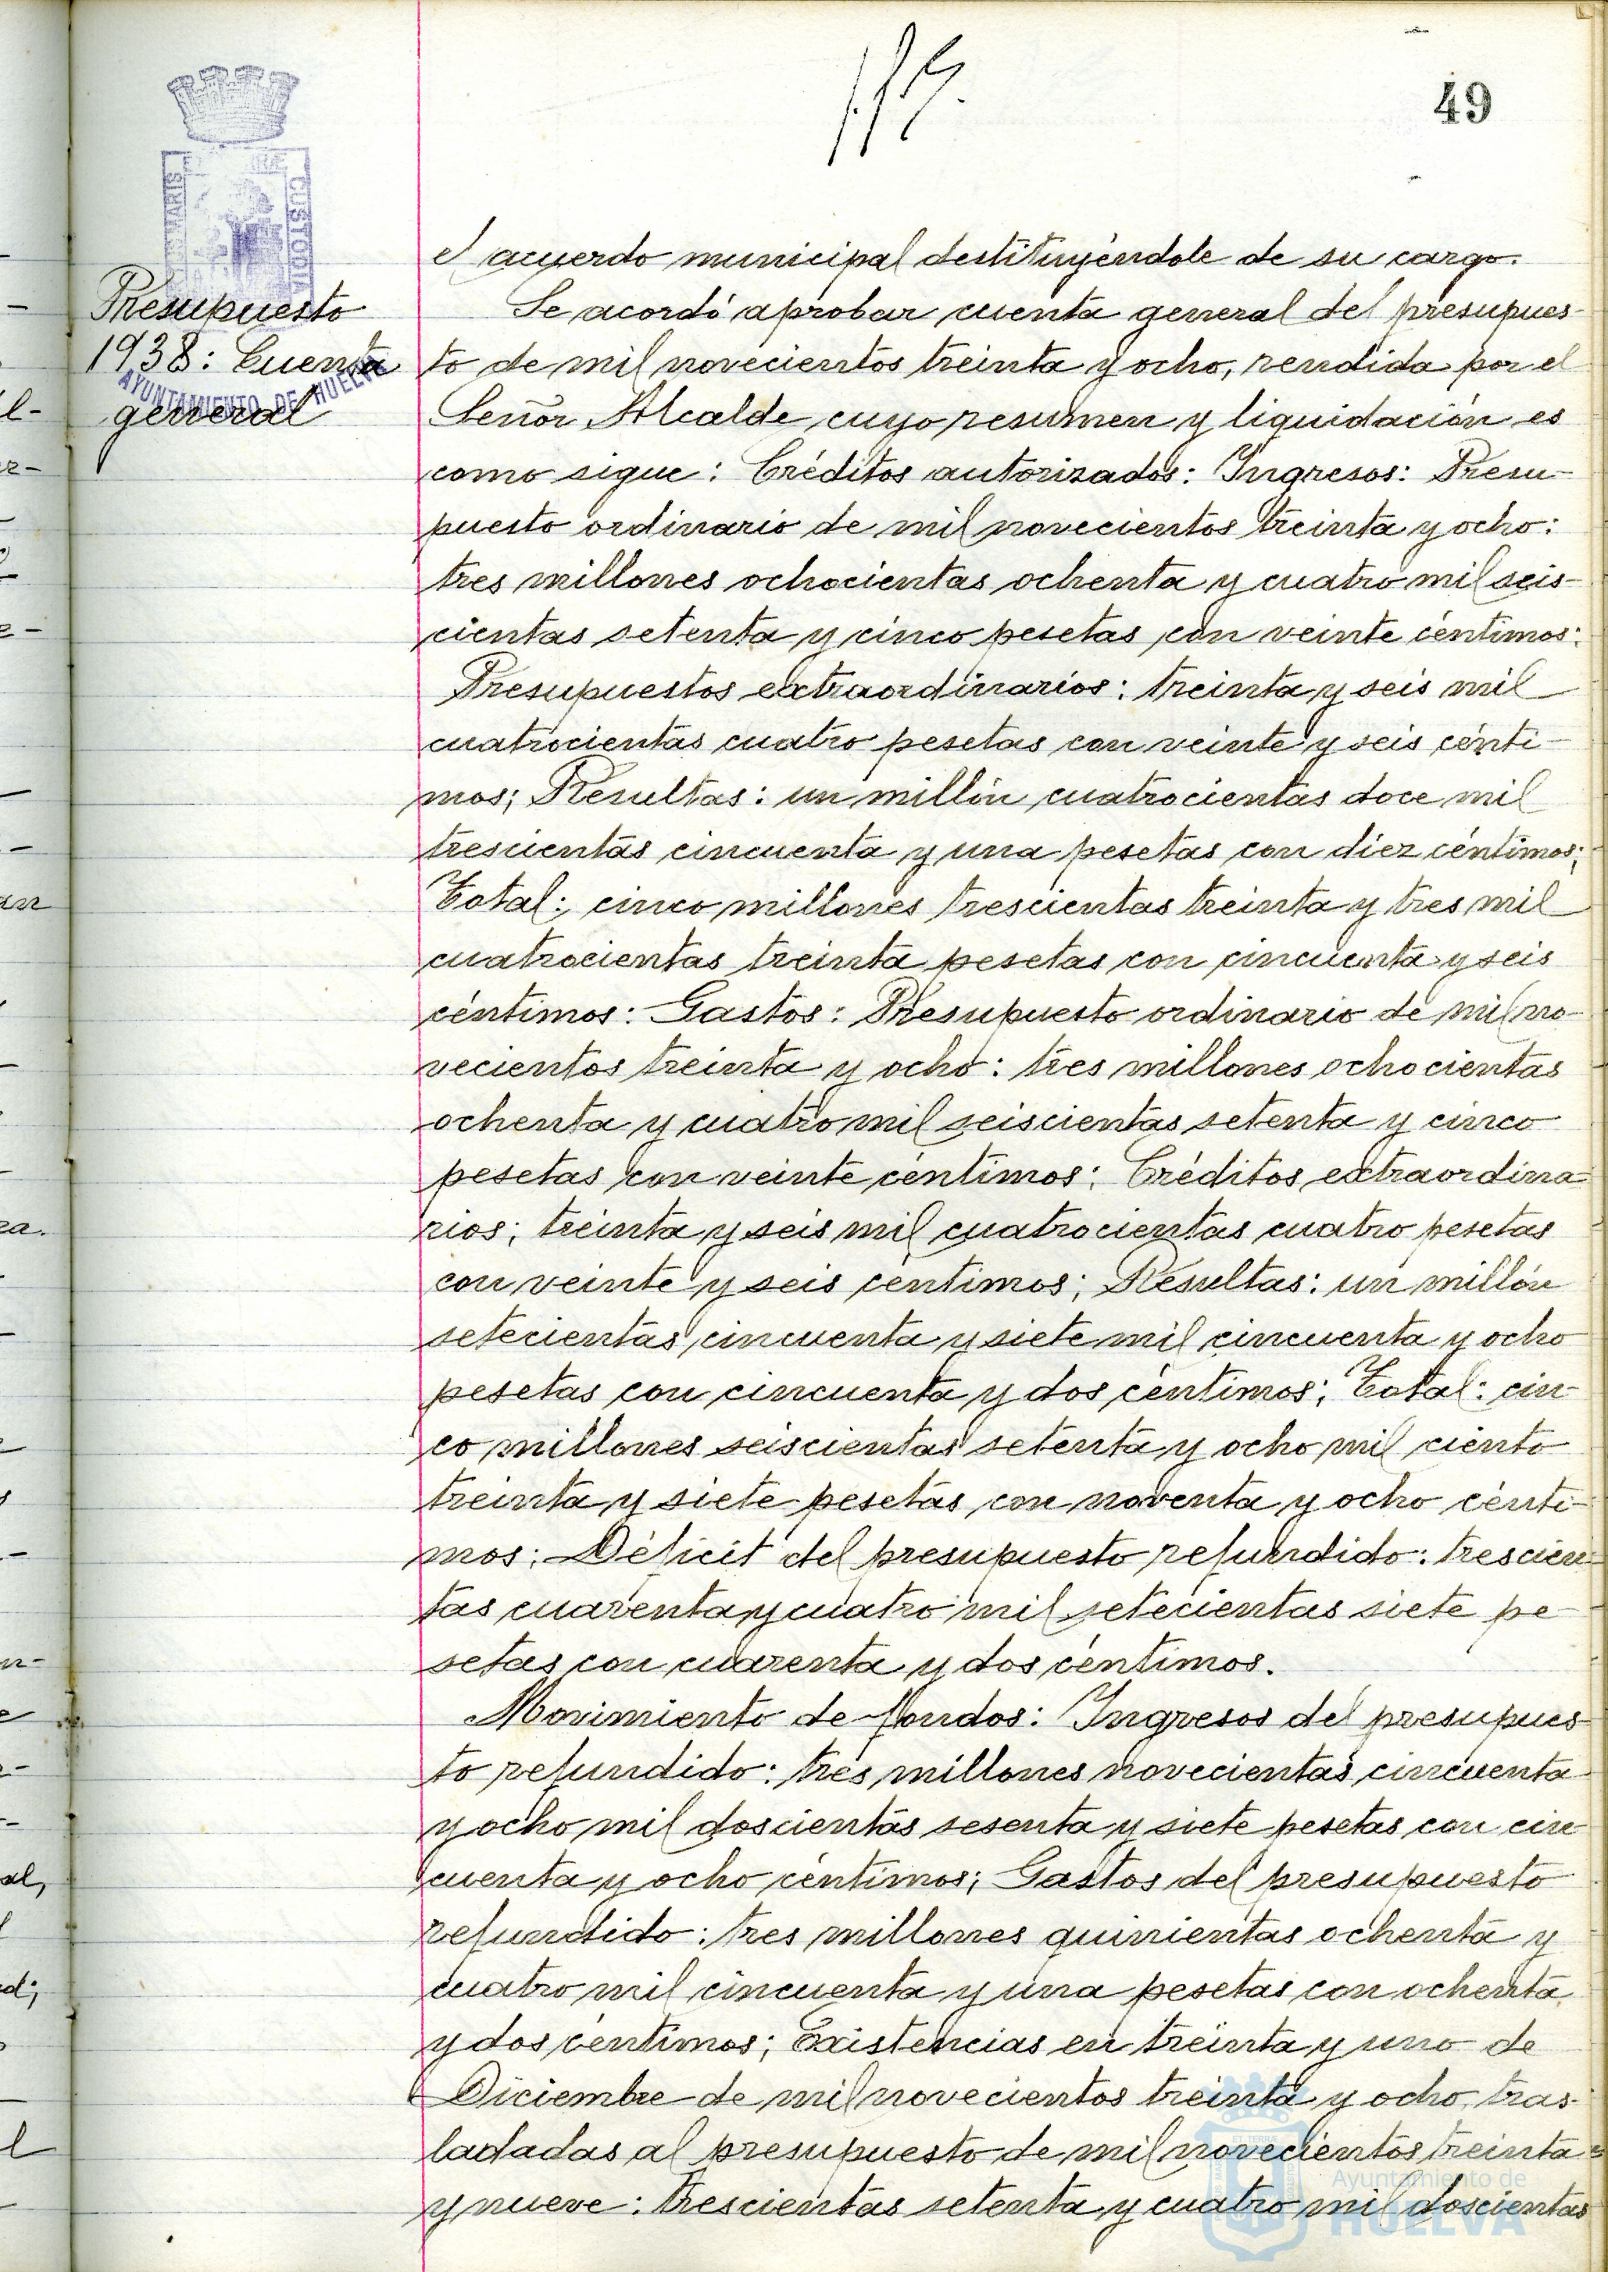 49
PORTUS MARIS ET TERRÆ CUSTODIA
AYUNTAMIENTO DE HUELVA
Presupuesto
1938: Cuenta
general
el acuerdo municipal destituyéndole de su cargo.
Se acordó aprobar cuenta general del presupues-
to de mil novecientos treinta y ocho, rendida por el
Señor Alcalde cuyo resumen y liquidación es
como sigue: Créditos autorizados: Ingresos: Presu-
puesto ordinario de mil novecientos treinta y ocho:
tres millones ochocientas ochenta y cuatro mil seis-
cientas setenta y cinco pesetas con veinte céntimos:
Presupuestos extraordinarios: treinta y seis mil
cuatrocientas cuatro pesetas con veinte y seis cénti-
mos; Resultas: un millón cuatrocientas doce mil
trescientas cincuenta y una pesetas con diez céntimos;
Total: cinco millones trescientas treinta y tres mil
cuatrocientas treinta pesetas con cincuenta y seis
céntimos: Gastos: Presupuesto ordinario de mil no-
vecientos treinta y ocho: tres millones ochocientas
ochenta y cuatro mil seiscientas setenta y cinco
pesetas con veinte céntimos: Créditos extraordina-
rios; treinta y seis mil cuatrocientas cuatro pesetas
con veinte y seis céntimos; Resultas: un millón
setecientas cincuenta y siete mil cincuenta y ocho
pesetas con cincuenta y dos céntimos; Total: cin-
co millones seiscientas setenta y ocho mil ciento
treinta y siete pesetas con noventa y ocho cénti-
mos; Déficit del presupuesto refundido: trescien-
tas cuarenta y cuatro mil setecientas siete pe-
setas con cuarenta y dos céntimos.
Movimiento de fondos: Ingresos del presupues-
to refundido: tres millones novecientas cincuenta
y ocho mil doscientas sesenta y siete pesetas con cin-
cuenta y ocho céntimos; Gastos del presupuesto
refundido: tres millones quinientas ochenta y
cuatro mil cincuenta y una pesetas con ochenta
y dos céntimos; Existencias en treinta y uno de
Diciembre de mil novecientos treinta y ocho, tras-
ladadas al presupuesto de mil novecientos treinta
y nueve: trescientas setenta y cuatro mil doscientas
Ayuntamiento de
HUELVA